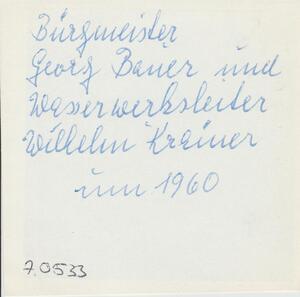 Bürgmeister
Georg Bauer und
Wasserwerksleiter
Wilhelm Krainer
um 1960
7.0533